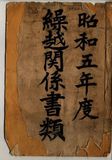 昭和五年度
繰越関係書類